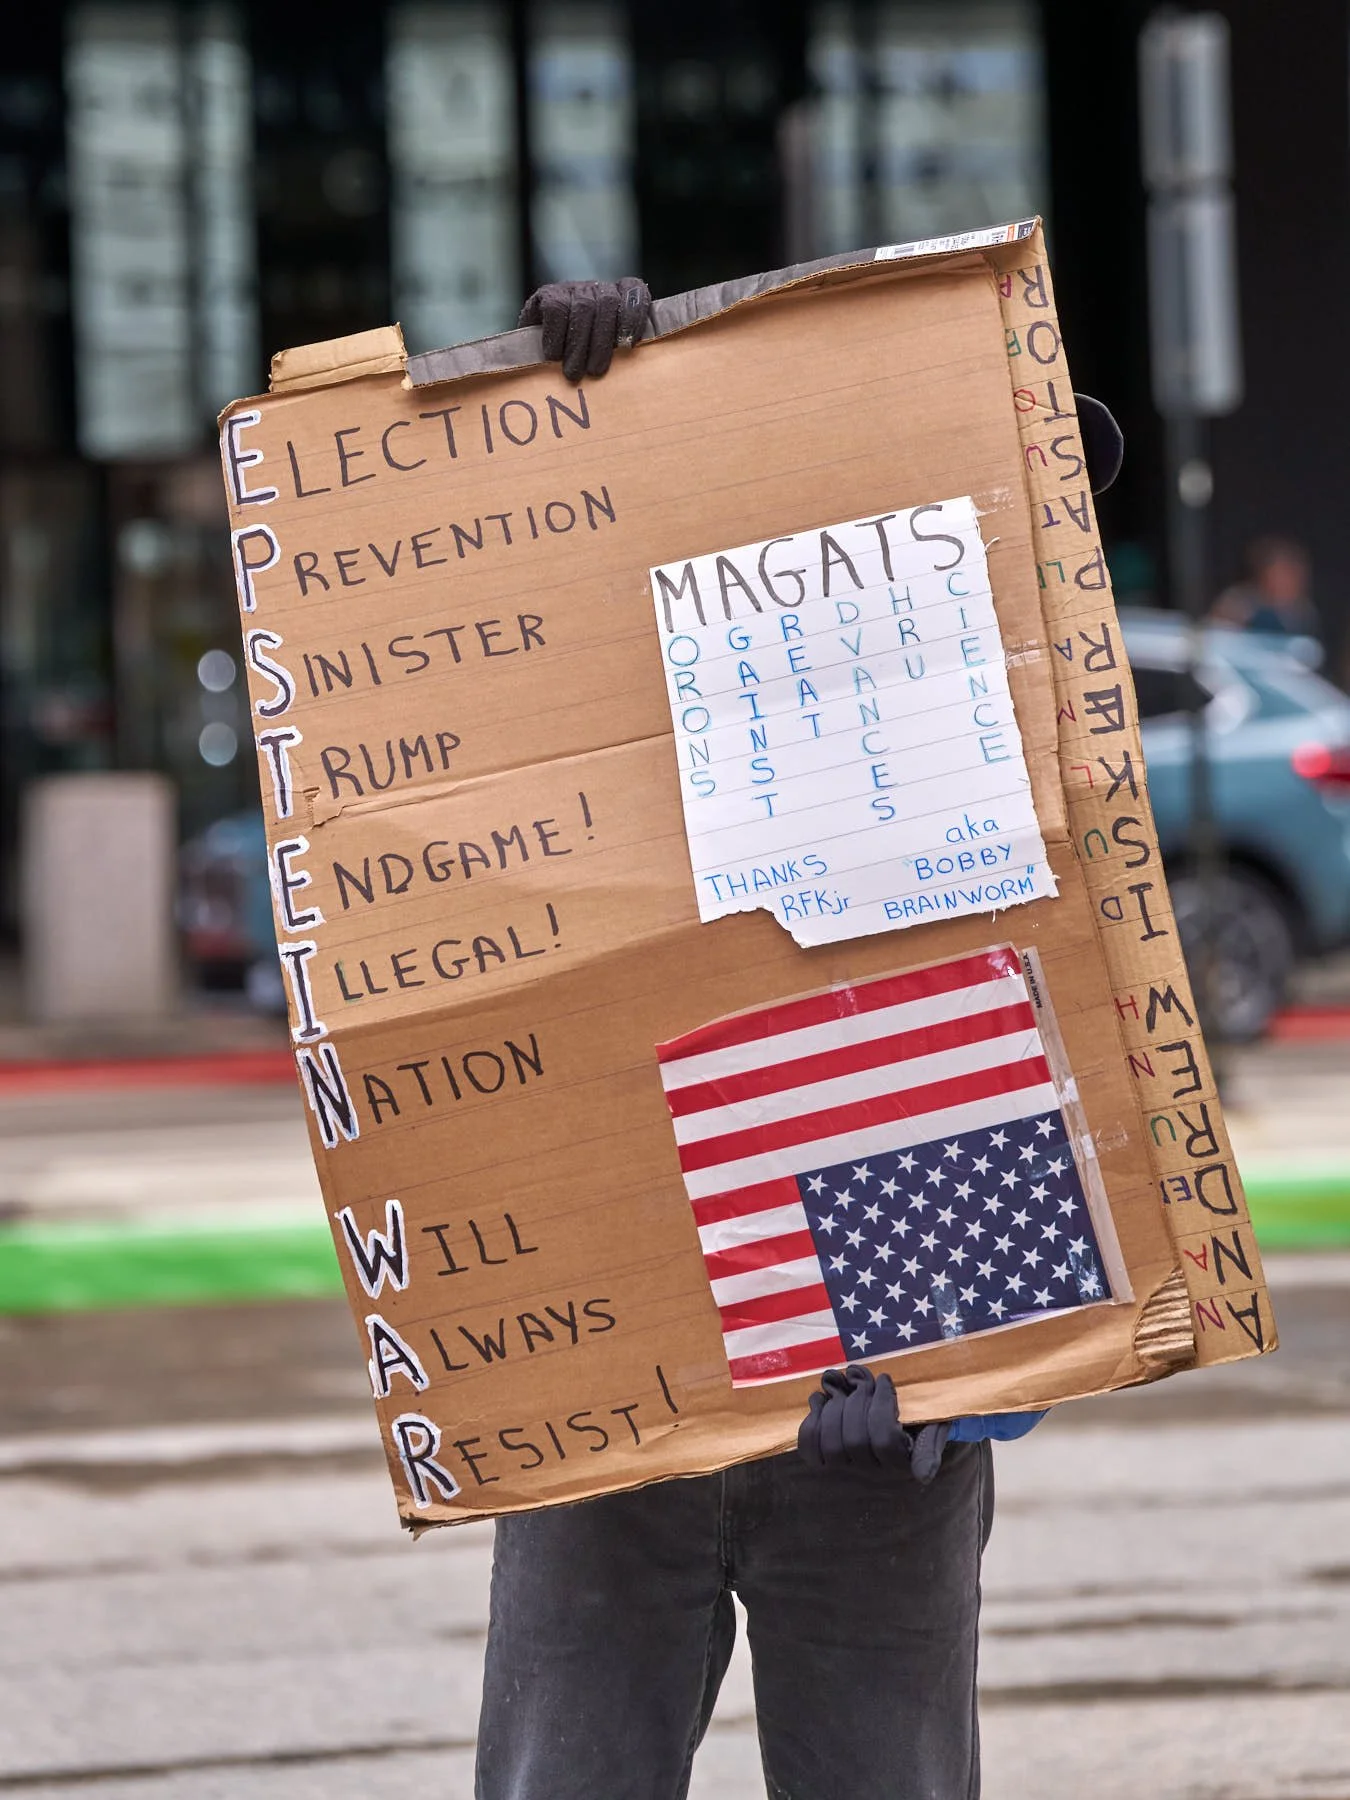 ELECTION
PREVENTION
SINISTER
TRUMP
ENDGAME!
ILLEGAL!
NATION
WILL
ALWAYS
RESIST!
MAGATS
ORONS
GAINST
REAT
DVANCES
HRU
CIENCE
THANKS
RFKjr
aka
"BOBBY
BRAINWORM"
MADE IN U.S.A.